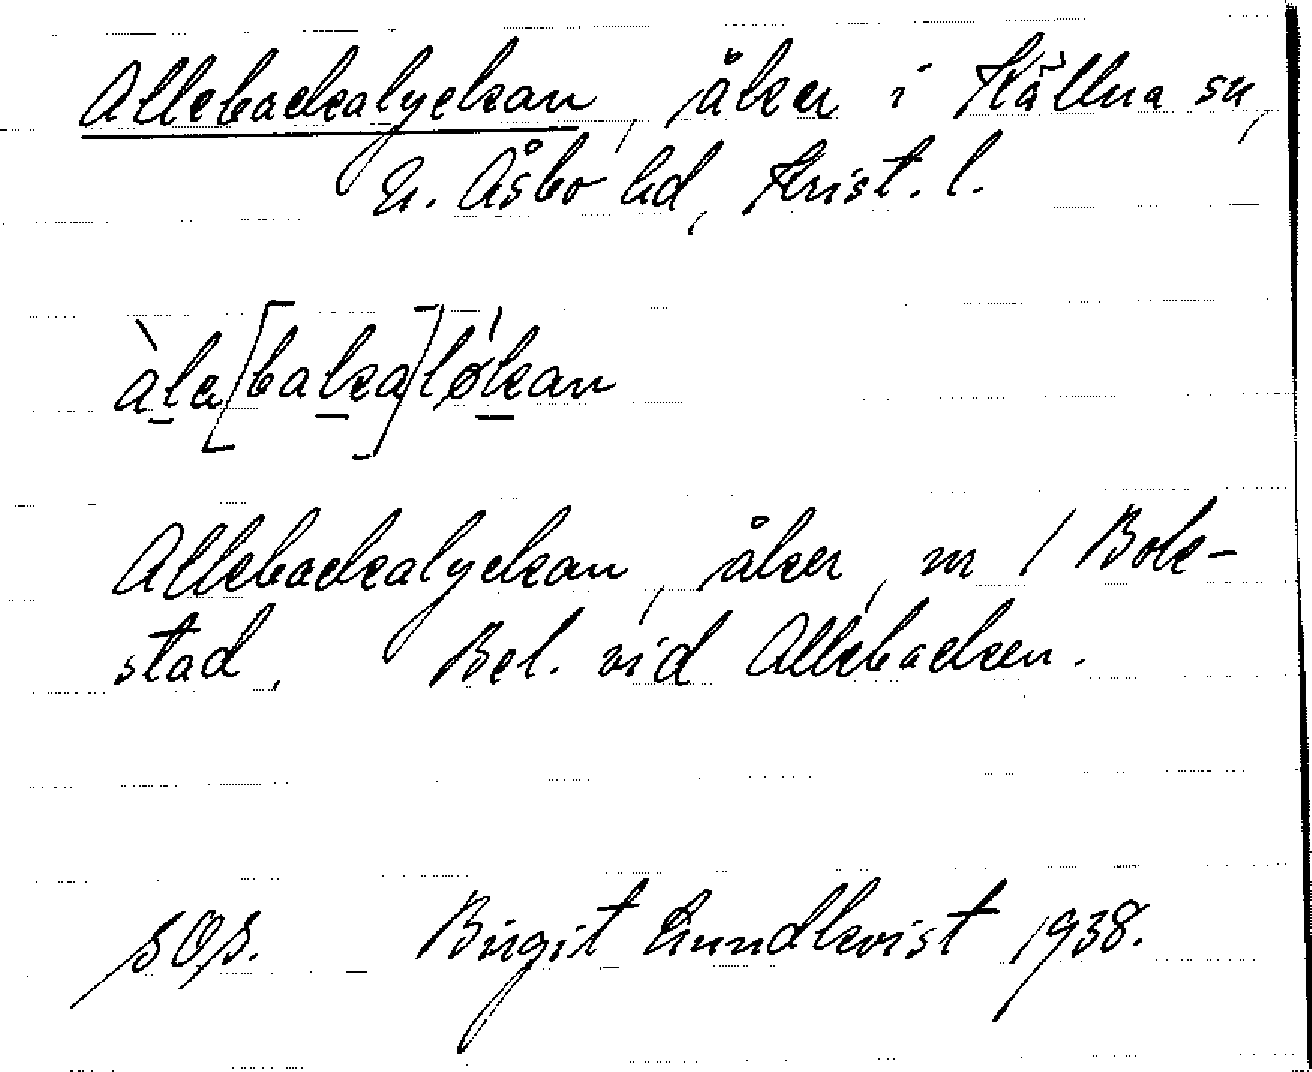 Allebackalyckan, åker i Källna sn,
N. Åsbo hd, Krist. l.
àla[baka]løkan
Allebackalyckan, åker, nr 1 Bole-
stad. Bel. vid Allebacken.
SOS. Birgit Lundkvist 1938.